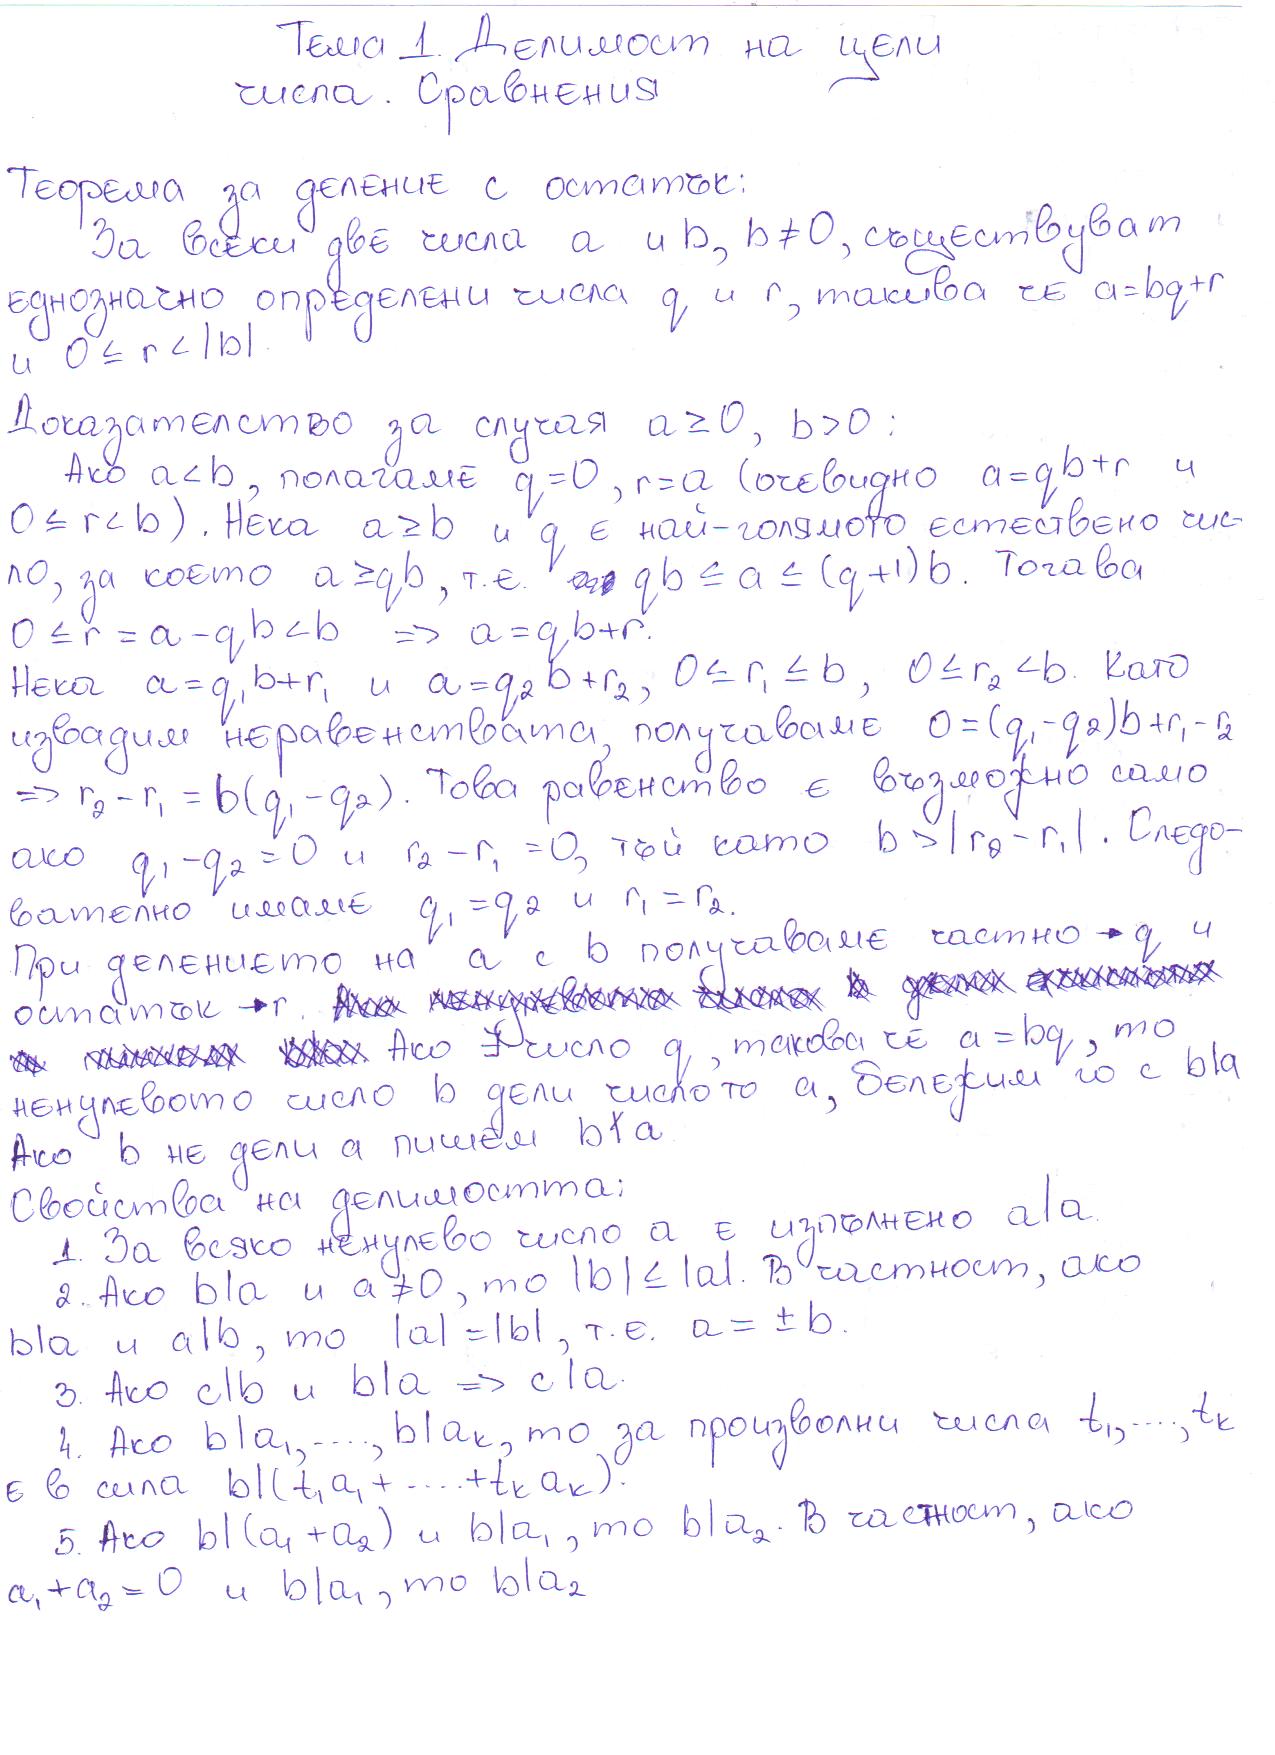 Тема 1. Делимост на цели
числа. Сравнения
Теорема за деление с остатък:
За всеки две числа a и b, b≠0, съществуват
еднозначно определени числа q и r, такива че a=bq+r
и 0≤r<|b|.
Доказателство за случая a≥0, b>0:
Ако a<b, полагаме q=0, r=a (очевидно a=qb+r и
0≤r<b). Нека a≥b и q е най-голямото естествено чис-
ло, за което a≥qb, т.е. qb≤a≤(q+1)b. Тогава
0≤r=a-qb<b => a=qb+r.
Нека a=q₁b+r₁ и a=q₂b+r₂, 0≤r₁≤b, 0≤r₂<b. Като
извадим неравенствата, получаваме 0=(q₁-q₂)b+r₁-r₂
=> r₂-r₁=b(q₁-q₂). Това равенство е възможно само
ако q₁-q₂=0 и r₂-r₁=0, тъй като b>|r₂-r₁|. Следо-
вателно имаме q₁=q₂ и r₁=r₂.
При делението на a с b получаваме частно → q и
остатък → r.
Ако ∃ число q, такова че a=bq, то
ненулевото число b дели числото a, бележим го с b|a
Ако b не дели a пишем b∤a
Свойства на делимостта:
1. За всяко ненулево число a е изпълнено a|a.
2. Ако b|a и a≠0, то |b|≤|a|. В частност, ако
b|a и a|b, то |a|=|b|, т.е. a=±b.
3. Ако c|b и b|a => c|a.
4. Ако b|a₁,....,b|aₖ, то за произволни числа t₁,....,tₖ
е в сила b|(t₁a₁+....+tₖaₖ).
5. Ако b|(a₁+a₂) и b|a₁, то b|a₂. В частност, ако
a₁+a₂=0 и b|a₁, то b|a₂